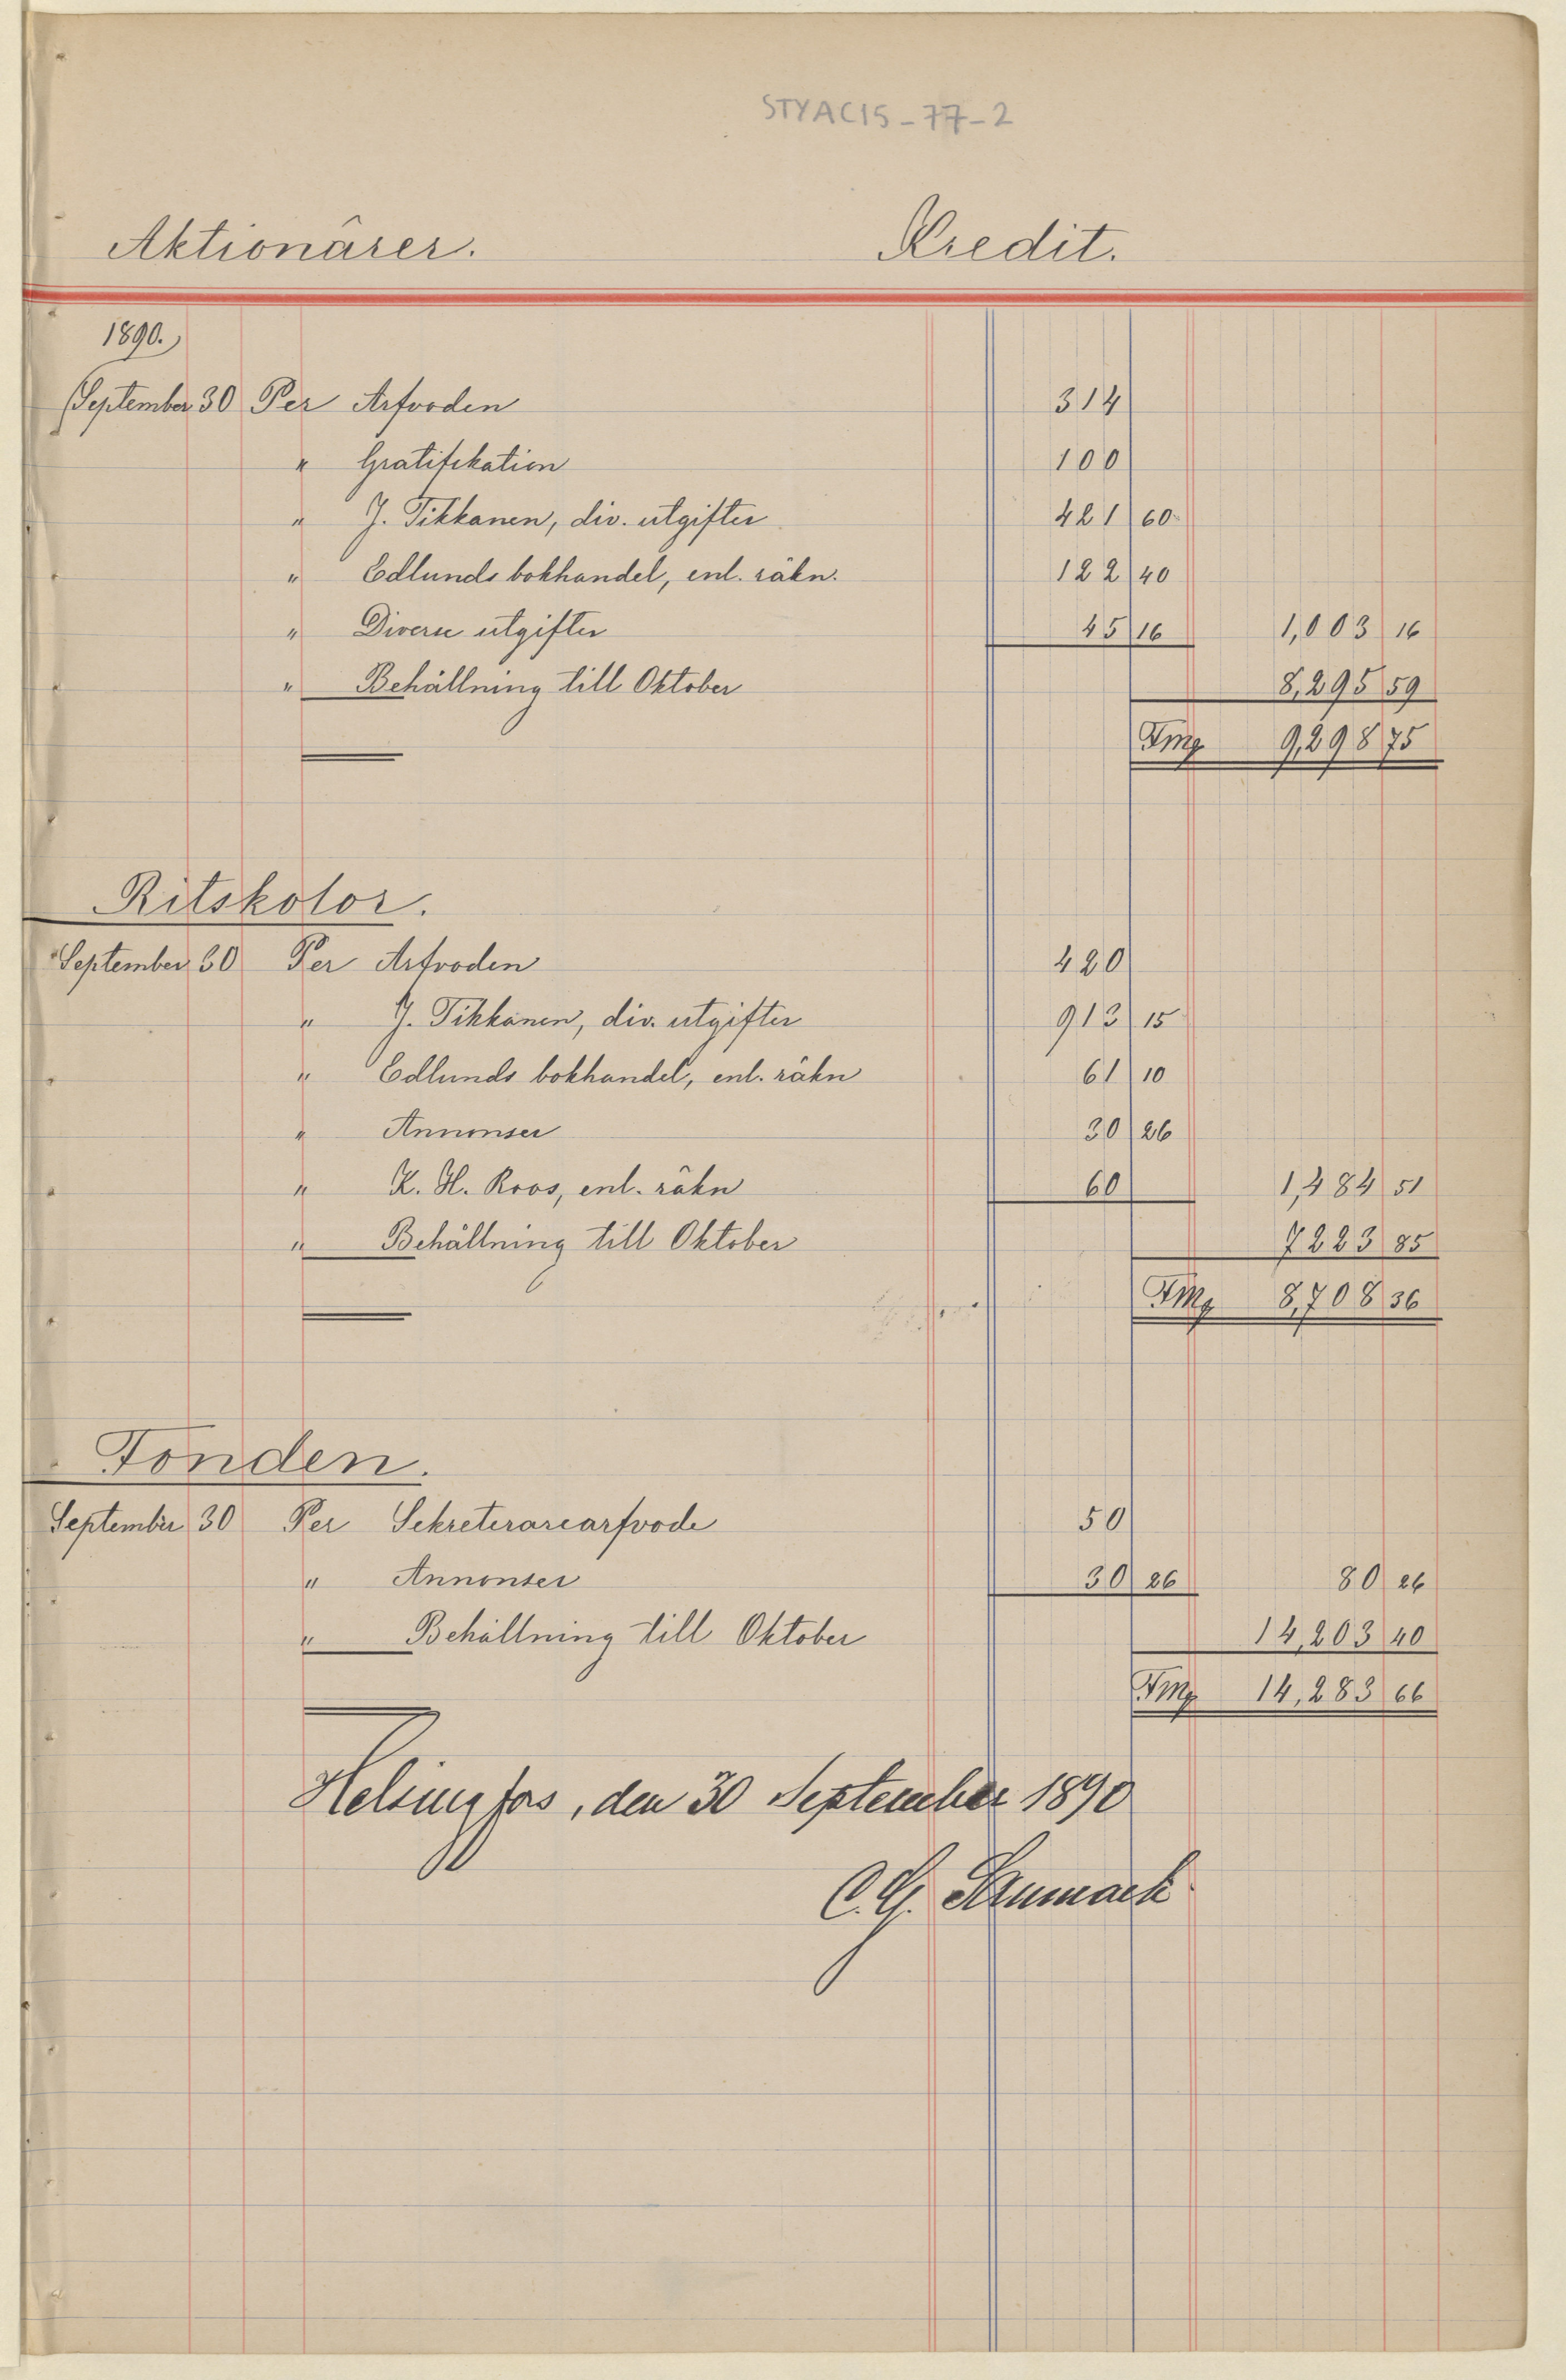 STYAC15-77-2
Aktionärer. Kredit.
1890.
September 30 Per Arfvoden 314
" Gratifikation 100
" J. Tikkanen, div. utgifter 421 60
" Edlunds bokhandel, enl. räkn. 122 40
" Diverse utgifter 45 16 1,003 16
" Behållning till Oktober 8,295 59
Fmg 9,298 75
Ritskolor.
September 30 Per Arfvoden 420
" J. Tikkanen, div. utgifter 913 15
" Edlunds bokhandel, enl. räkn 61 10
" Annonser 30 26
" K. H. Roos, enl. räkn 60 1,484 51
" Behållning till Oktober 7223 85
Fmg 8,708 36
Fonden.
September 30 Per Sekreterarearfvode 50
" Annonser 30 26 80 26
" Behållning till Oktober 14,203 40
Fmg 14,283 66
Helsingfors, den 30 September 1890
C. G.